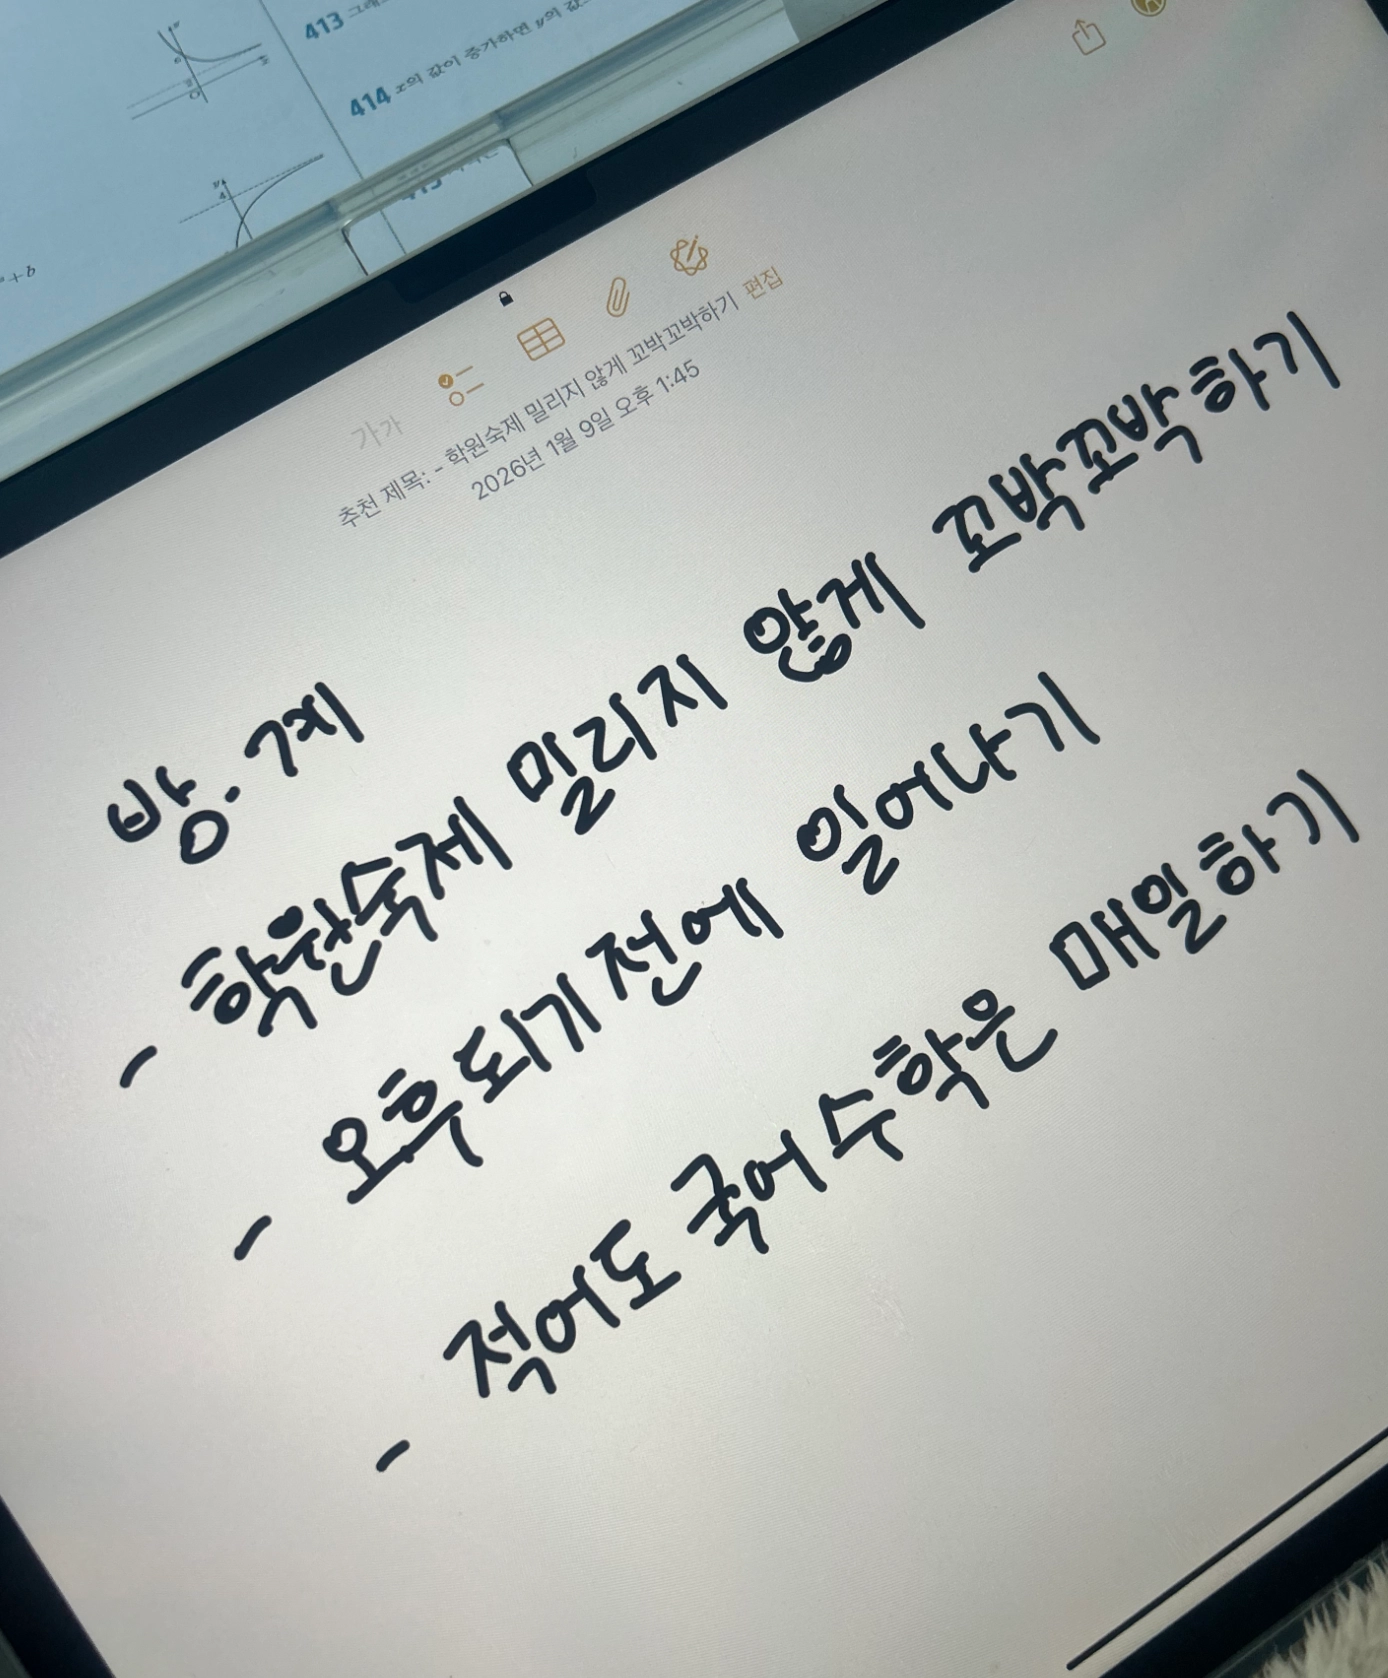 413 그래
414 x의 값이 증가하면 y의 값
가가
추천 제목: - 학원숙제 밀리지 않게 꼬박꼬박하기 편집
2026년 1월 9일 오후 1:45
방.계
- 학원숙제 밀리지 않게 꼬박꼬박하기
- 오후되기 전에 일어나기
- 적어도 국어수학은 매일하기